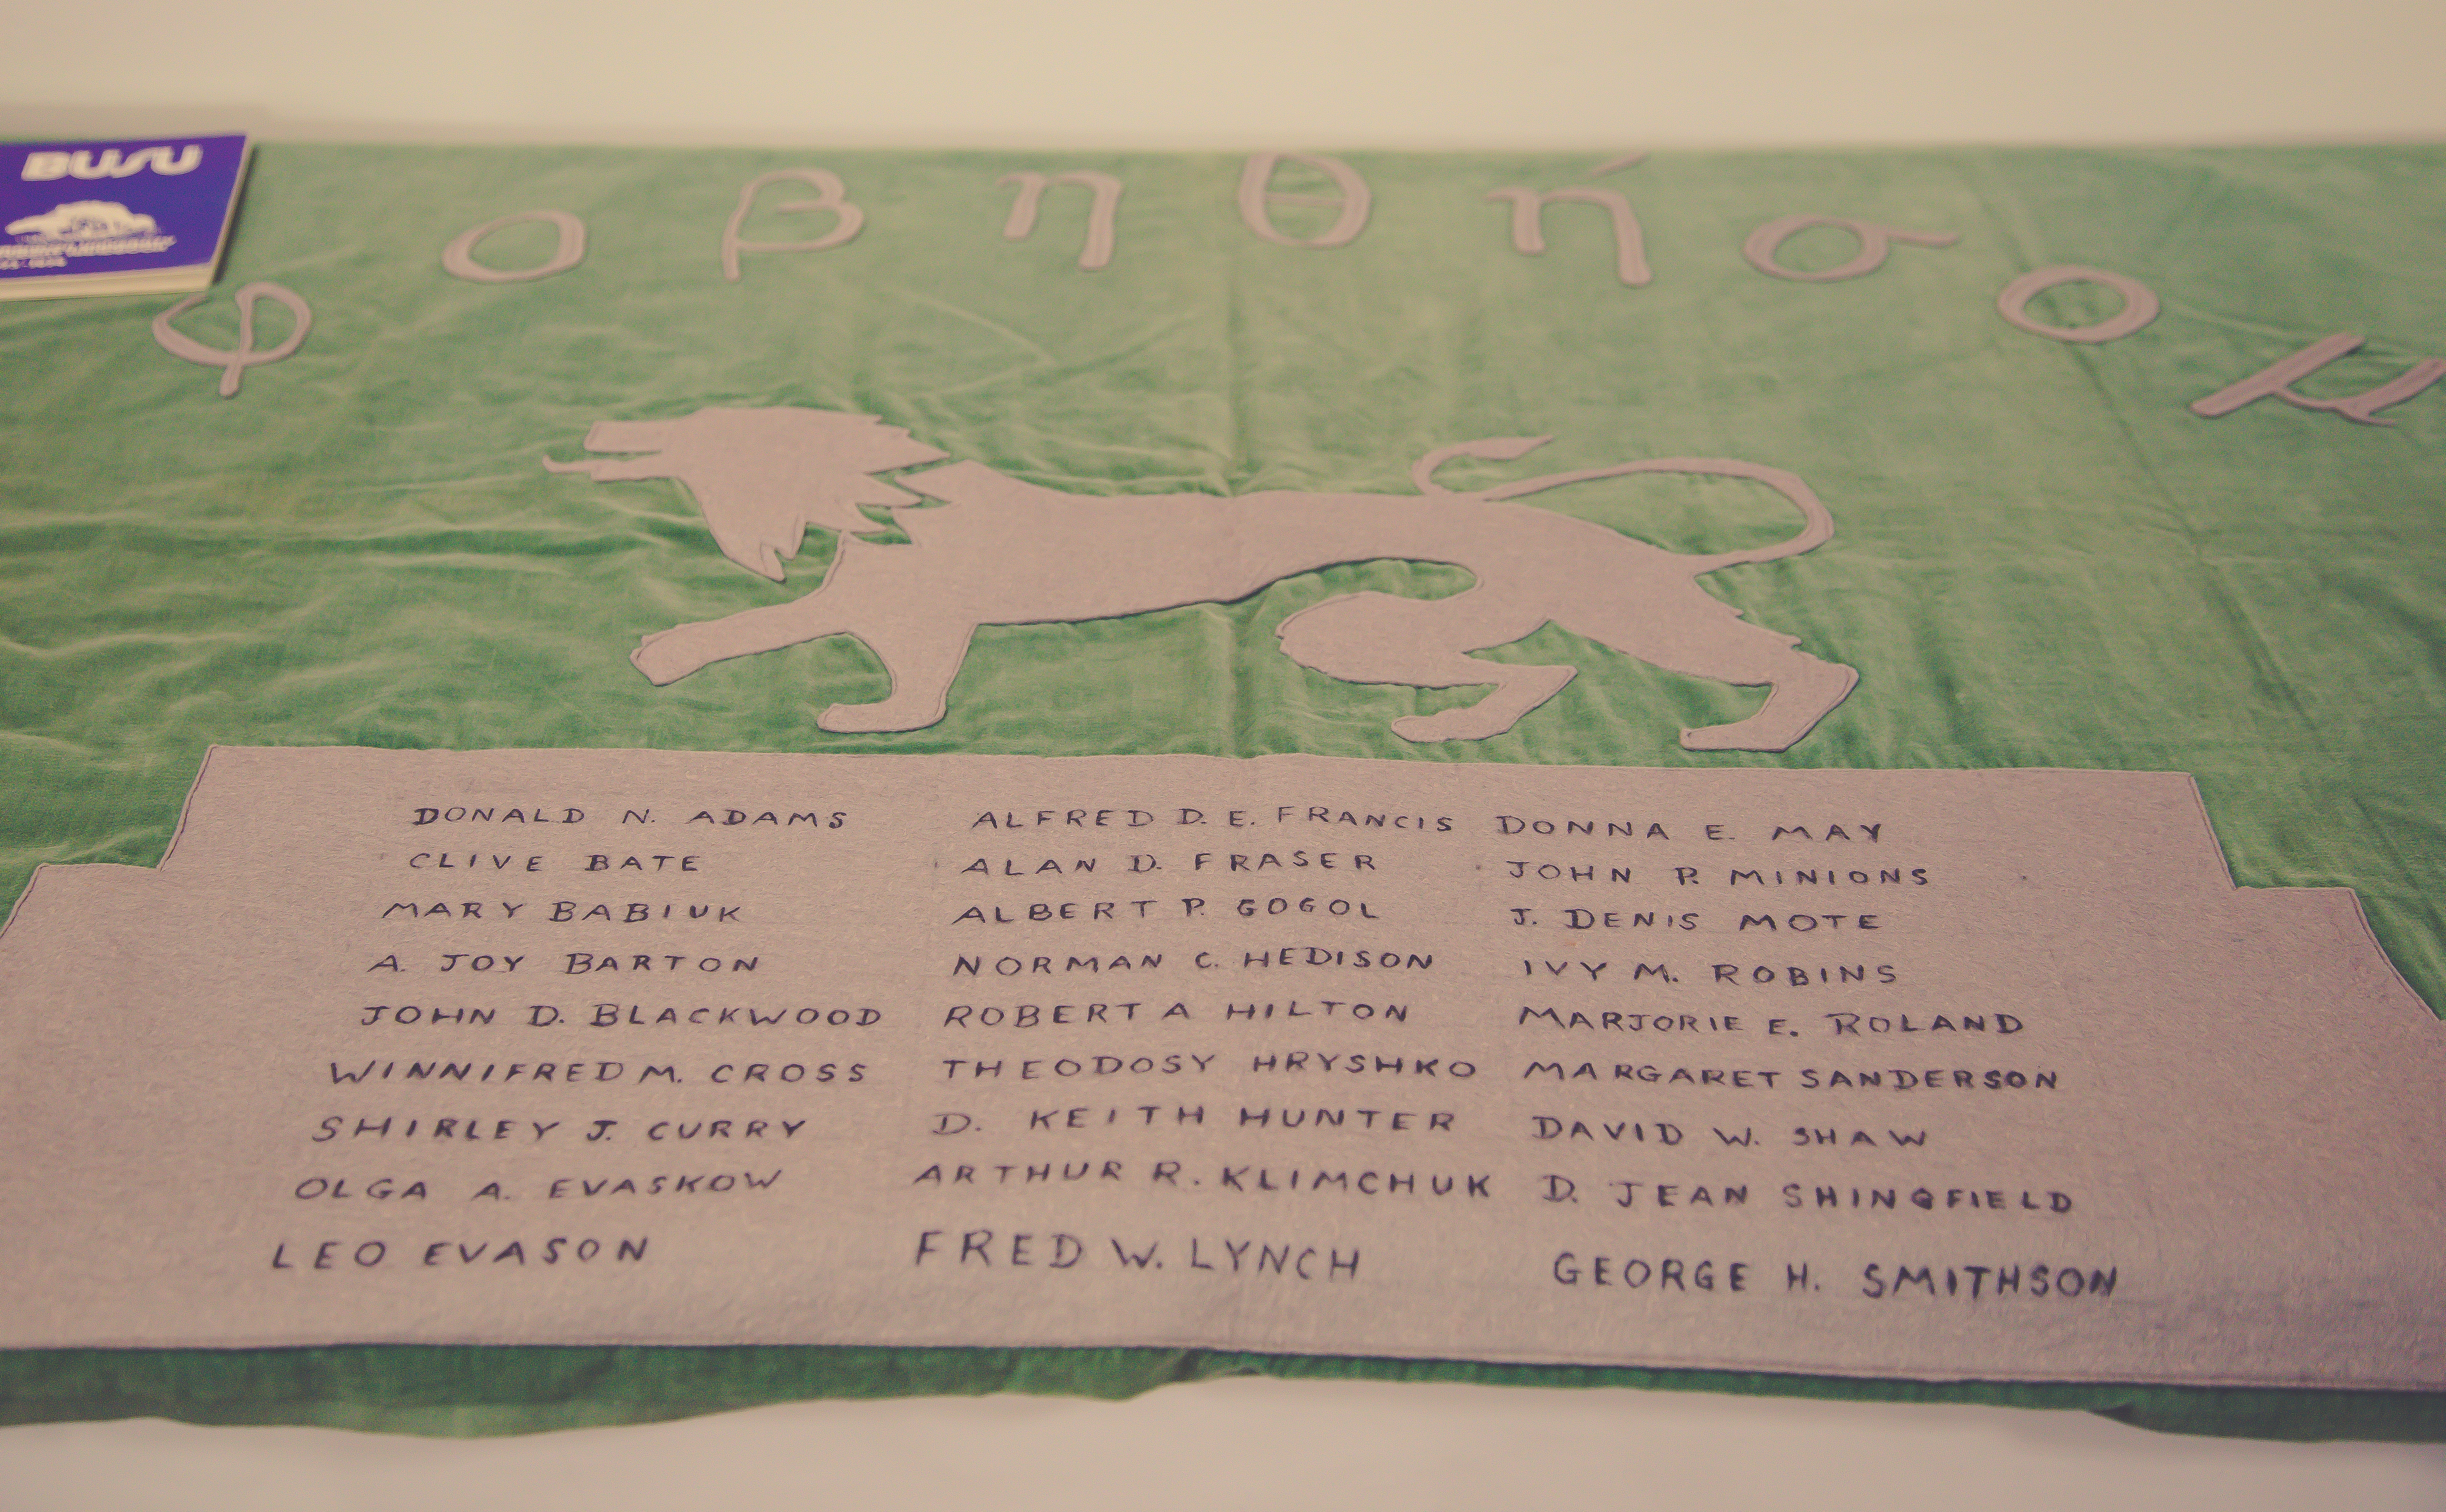 BUSU
φοβηθήσομ
DONALD N. ADAMS
CLIVE BATE
MARY BABIUK
A. JOY BARTON
JOHN D. BLACKWOOD
WINNIFRED M. CROSS
SHIRLEY J. CURRY
OLGA A. EVASKOW
LEO EVASON
ALFRED D. E. FRANCIS
ALAN D. FRASER
ALBERT P. GOGOL
NORMAN C. HEDISON
ROBERT A HILTON
THEODOSY HRYSHKO
D. KEITH HUNTER
ARTHUR R. KLIMCHUK
FRED W. LYNCH
DONNA E. MAY
JOHN P. MINIONS
J. DENIS MOTE
IVY M. ROBINS
MARJORIE E. ROLAND
MARGARET SANDERSON
DAVID W. SHAW
D. JEAN SHINGFIELD
GEORGE H. SMITHSON